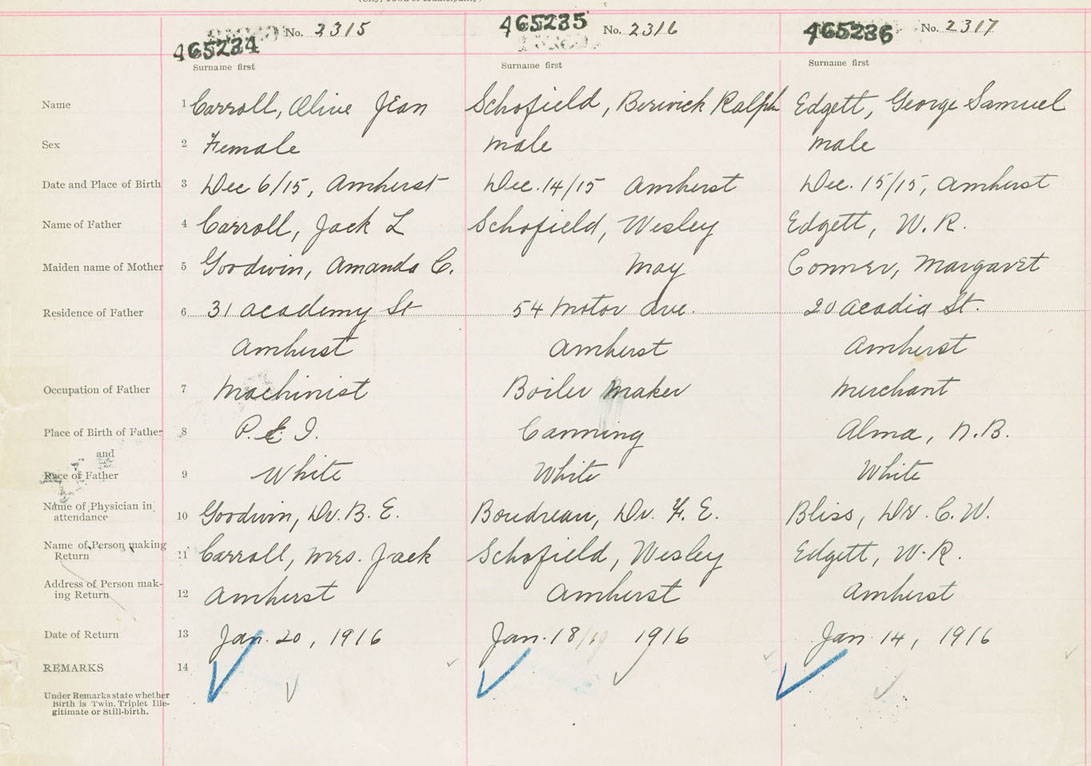 465234 No. 2315 465235 No. 2316 465236 No. 2317
Surname first Surname first Surname first
Name 1 Carroll, Olive Jean Schofield, Berwick Ralph Edgett, George Samuel
Sex 2 Female male male
Date and Place of Birth 3 Dec 6/15, Amherst Dec. 14/15 Amherst Dec. 15/15, Amherst
Name of Father 4 Carroll, Jack L Schofield, Wesley Edgett, W. R.
Maiden name of Mother 5 Goodwin, Amanda C. May Conner, Margaret
Residence of Father 6 31 academy St 54 Motor ave. 20 acadia St.
Amherst Amherst Amherst
Occupation of Father 7 Machinist Boiler maker Merchant
Place of Birth of Father 8 P.E I. Canning Alma, N.B.
and
Race of Father 9 White White White
Name of Physician in
attendance 10 Goodwin, Dr. B. E. Boudreau, Dr. F. E. Bliss, Dr. C. W.
Name of Person making
Return 11 Carroll, Mrs. Jack Schofield, Wesley Edgett, W. R.
Address of Person mak-
ing Return 12 Amherst Amherst Amherst
Date of Return 13 Jan. 20, 1916 Jan. 18 1916 Jan 14, 1916
REMARKS 14
Under Remarks state whether
Birth is Twin, Triplet Ille-
gitimate or Still-birth.